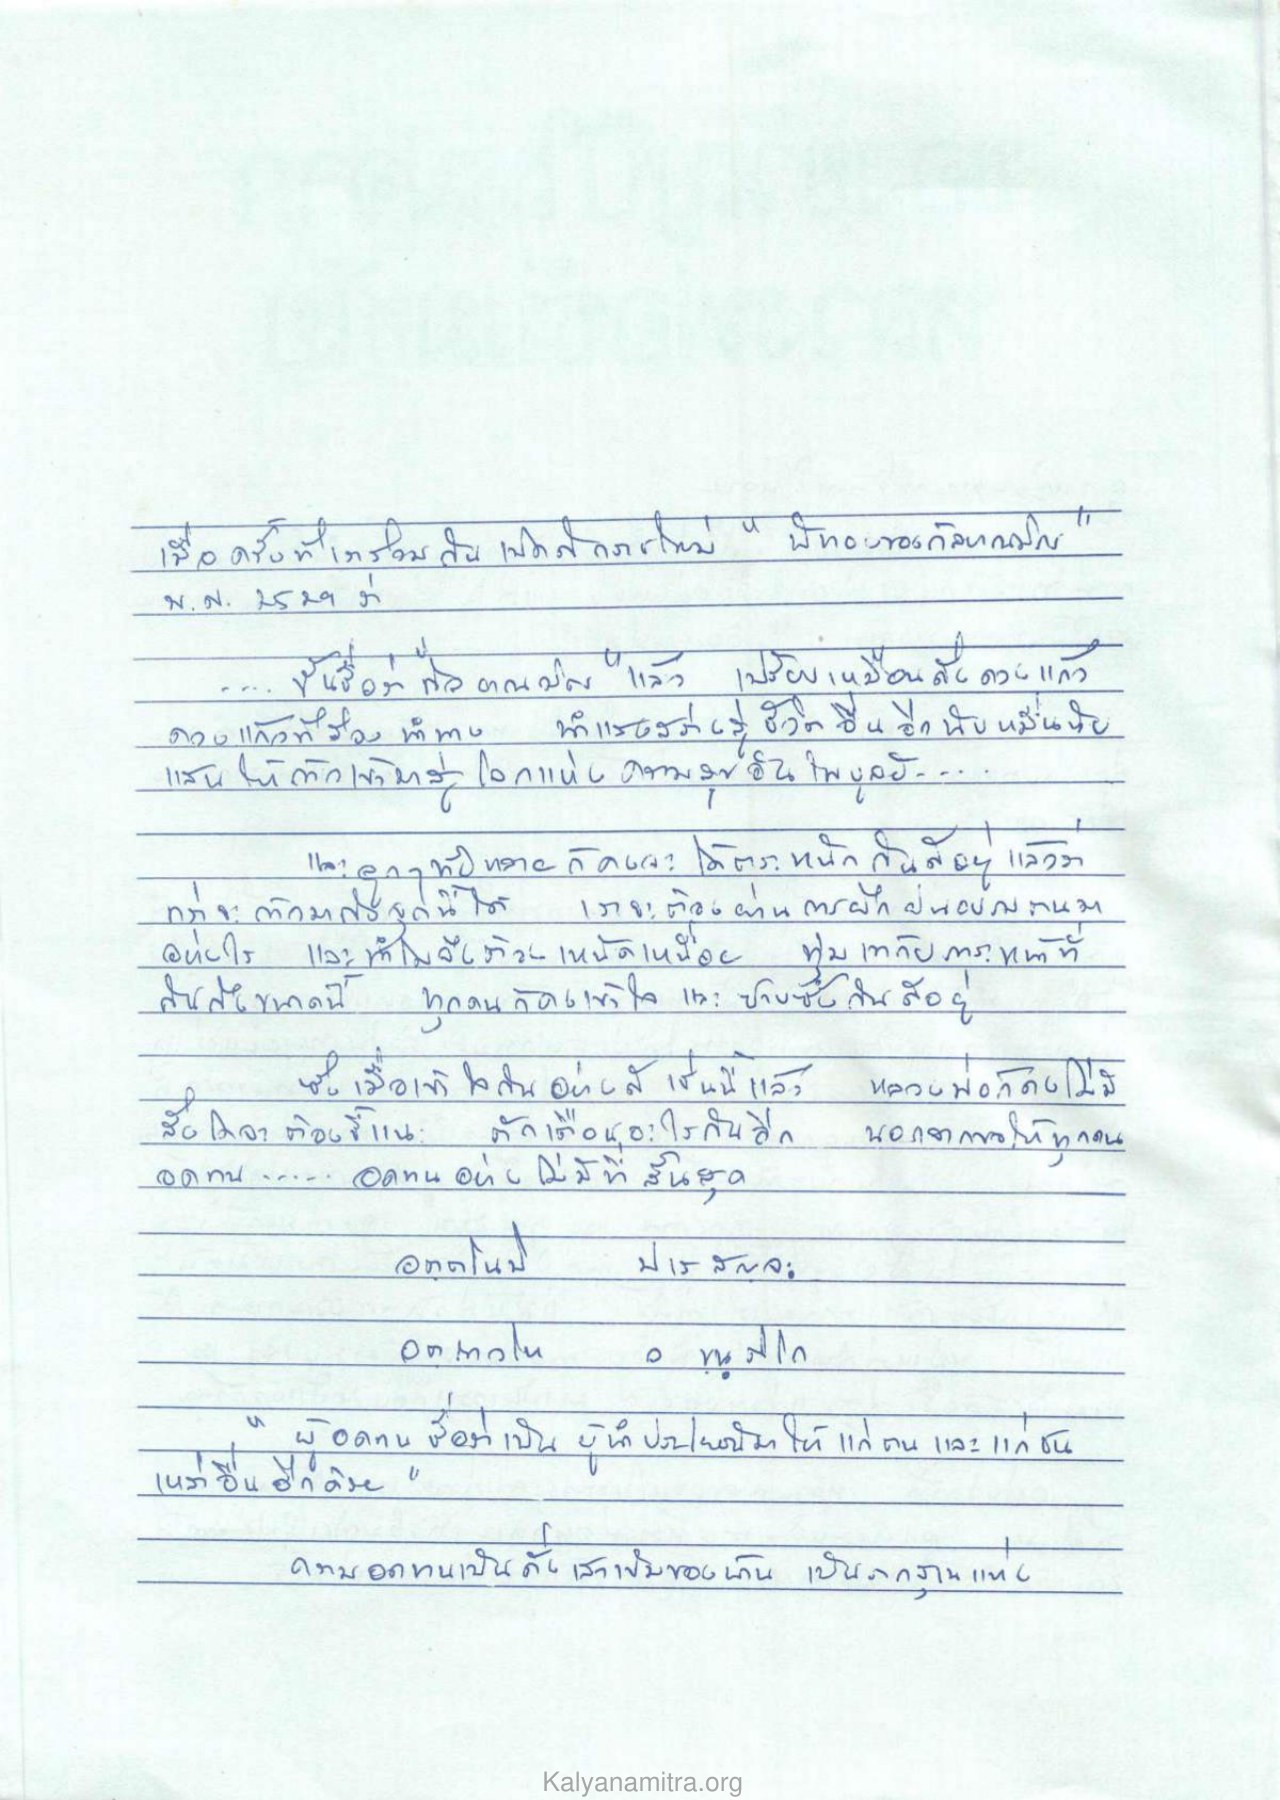 เมื่อครั้งที่เราร่วมกันเปิดศักราชใหม่ " ปีทองของกัลยาณมิตร"
พ.ศ. ๒๕๒๙ ว่า
..... ขึ้นชื่อว่า "กัลยาณมิตร" แล้ว เปรียบเหมือนดั่งดวงแก้ว
ดวงแก้วที่เรืองนำทาง นำแสงสว่างสู่ชีวิตอื่นอีกนับหมื่นนับ
แสนให้ก้าวเข้ามาสู่โลกแห่งความสุขอันไพบูลย์.....
และลูกๆทั้งหลายก็คงจะได้ตระหนักกันดีอยู่แล้วว่า
กว่าจะก้าวมาถึงจุดนี้ได้ เราจะต้องผ่านการฝึกฝนอบรมกันมา
อย่างไร และทำไมจึงต้องเหน็ดเหนื่อย ทุ่มเทกับภาระหน้าที่
กันถึงขนาดนี้ ทุกคนก็คงเข้าใจและซาบซึ้งกันดีอยู่
ซึ่งเมื่อเข้าใจกันอย่างดีเช่นนี้แล้ว หลวงพ่อก็คงไม่มี
สิ่งใดจะต้องชี้แนะ ตักเตือนอะไรกันอีก นอกจากขอให้ทุกคน
อดทน...... อดทนอย่างไม่มีที่สิ้นสุด
อตฺตโนปิ ปเรสญฺจะ
อตฺถาวโห อ ขนฺติโก
" ผู้อดทนชื่อว่าเป็นผู้นำประโยชน์มาให้แก่ตนและแก่ชน
เหล่าอื่นอีกด้วย "
ความอดทนเป็นดั่งเสาเข็มของบ้าน เป็นรากฐานแห่ง
Kalyanamitra.org